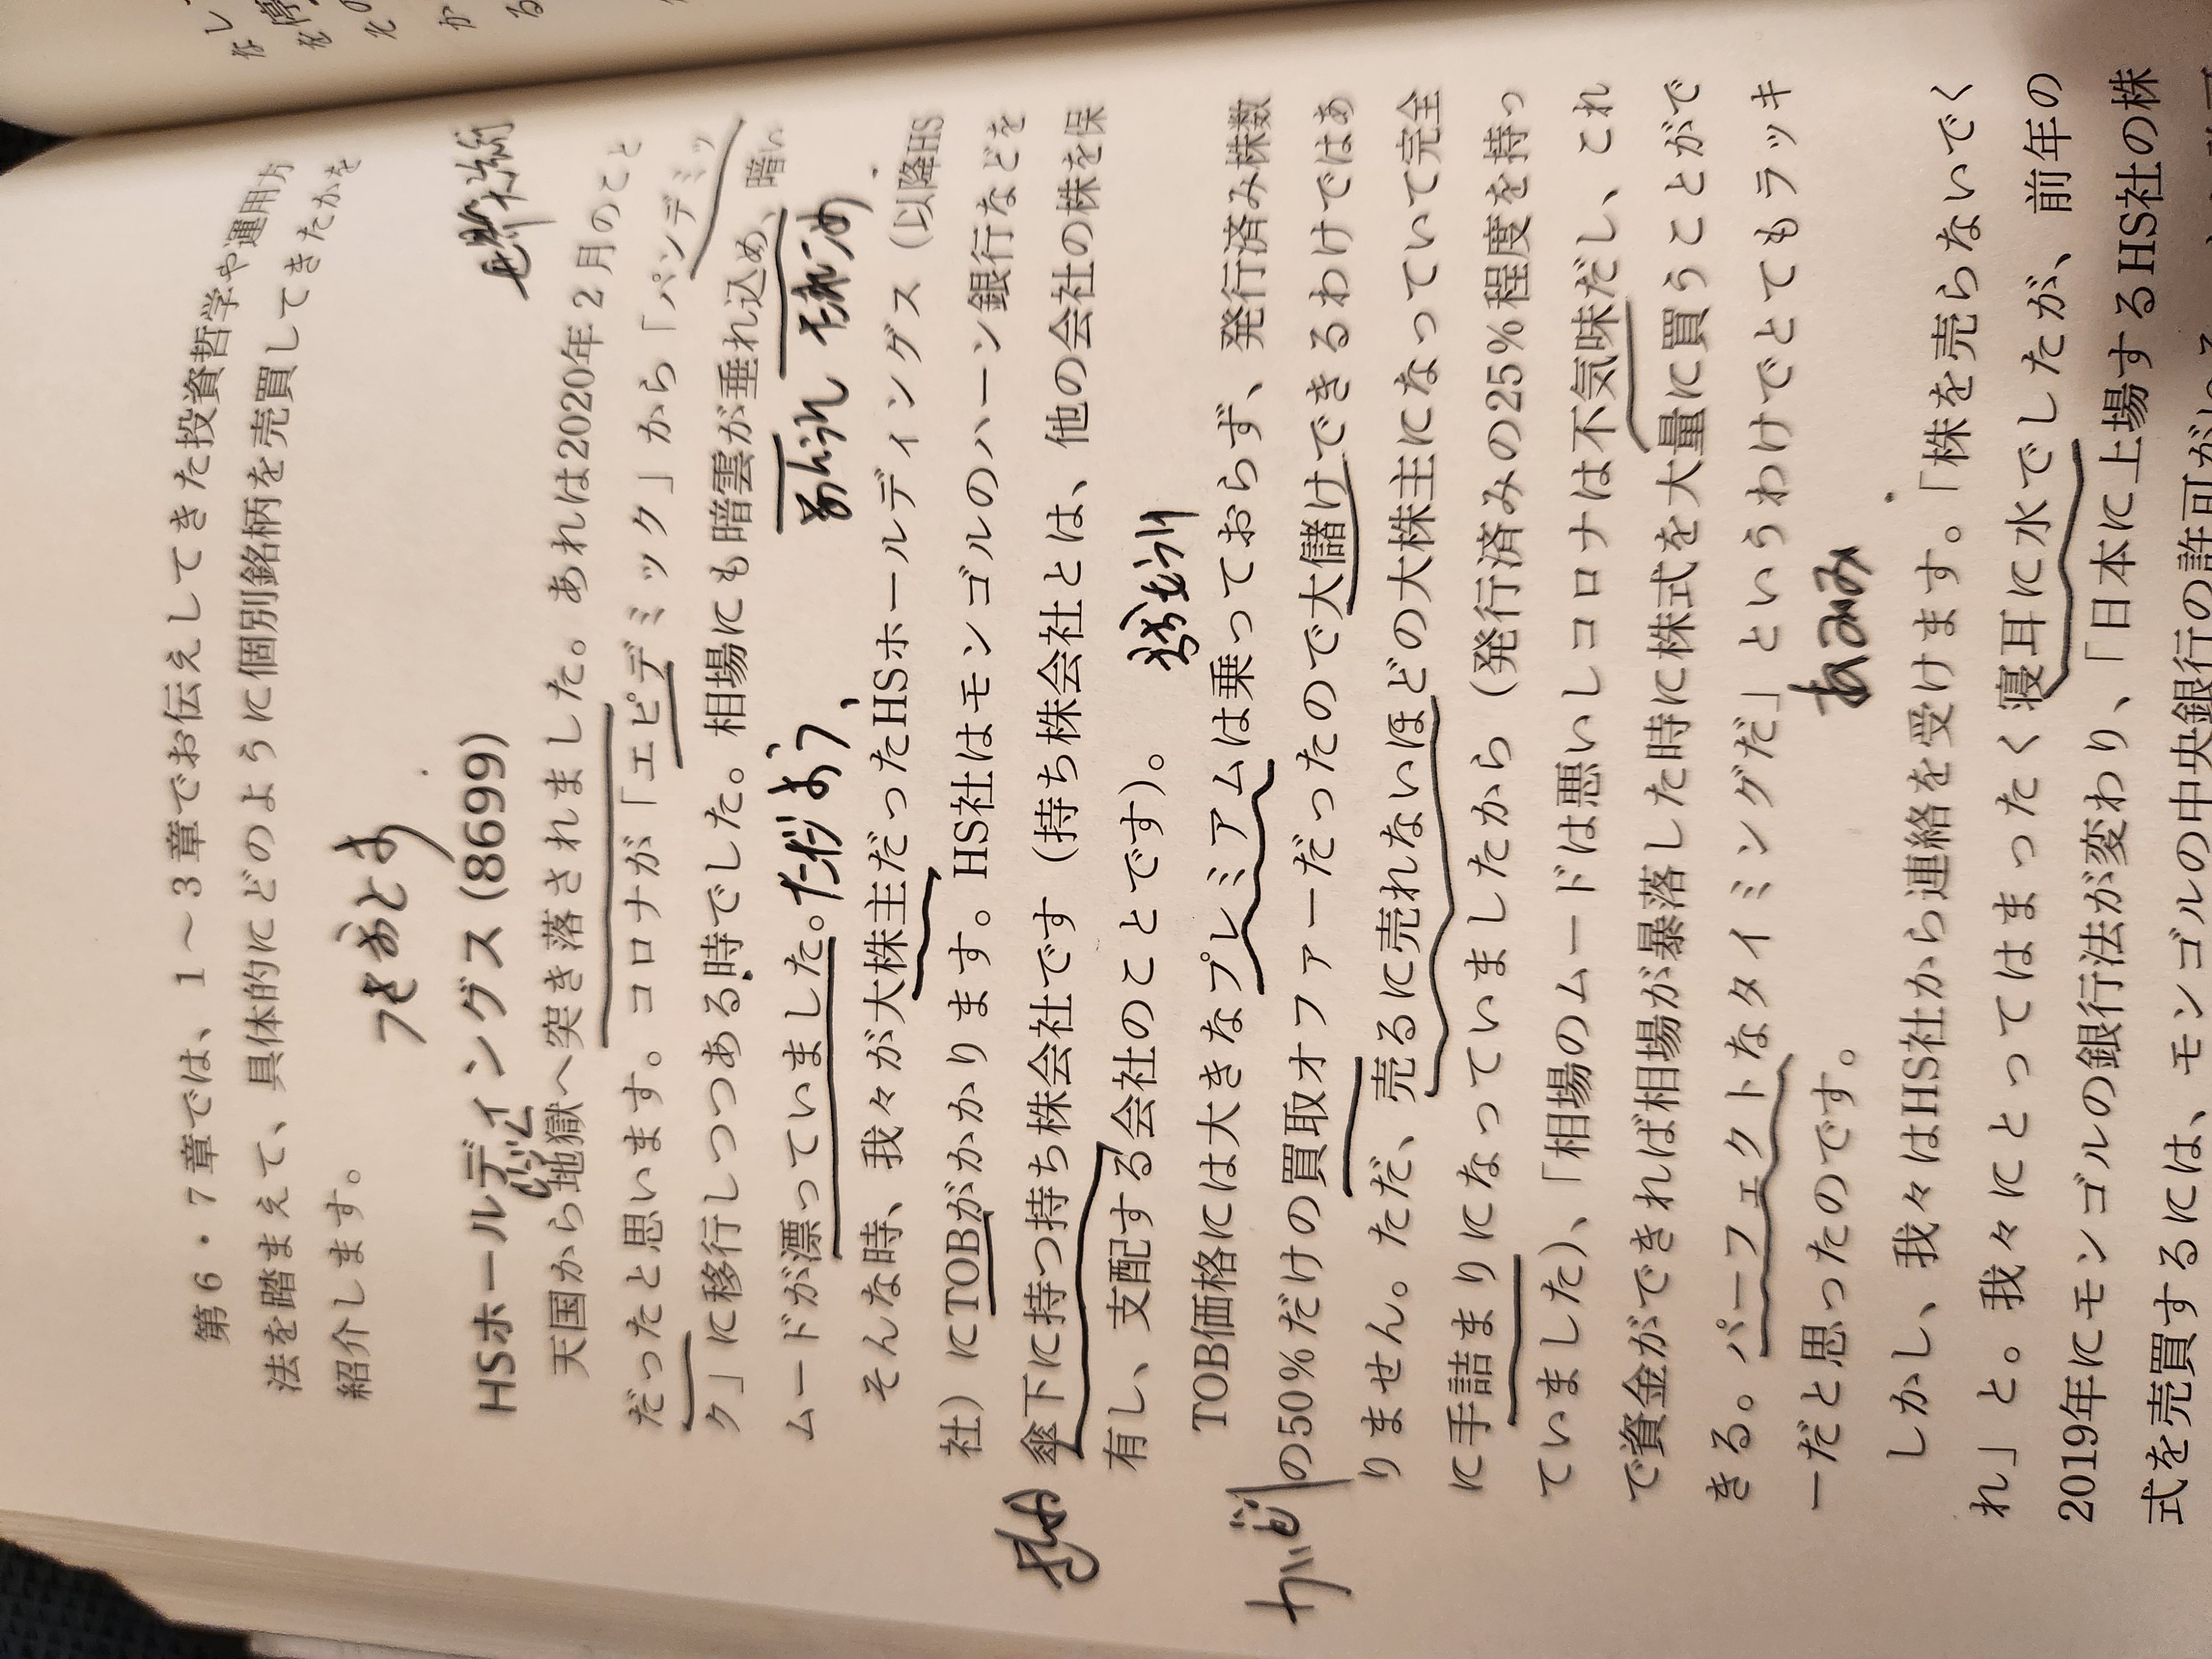 第6・7章では、1～3章でお伝えしてきた投資哲学や運用方
法を踏まえて、具体的にどのように個別銘柄を売買してきたかを
紹介します。
つきおとす
HSホールディングス (8699)
じごく
天国から地獄へ突き落されました。あれは2020年2月のこと
だったと思います。コロナが「エピデミック」から「パンデミッ
ク」に移行しつつある時でした。相場にも暗雲が垂れ込め、暗い
ただよう
あんうん たれこめ
ムードが漂っていました。
そんな時、我々が大株主だったHSホールディングス（以降HS
社）にTOBがかかります。HS社はモンゴルのハーン銀行などを
傘下に持つ持ち株会社です（持ち株会社とは、他の会社の株を保
有し、支配する会社のことです）。
TOB価格には大きなプレミアムは乗っておらず、発行済み株数
の50％だけの買取オファーだったので大儲けできるわけではあ
りません。ただ、売るに売れないほどの大株主になっていて完全
に手詰まりになっていましたから（発行済みの25％程度を持っ
ていました）、「相場のムードは悪いしコロナは不気味だし、これ
で資金ができれば相場が暴落した時に株式を大量に買うことがで
きる。パーフェクトなタイミングだ」というわけでとてもラッキ
ーだと思ったのです。
しかし、我々はHS社から連絡を受けます。「株を売らないでく
れ」と。我々にとってはまったく寝耳に水でしたが、前年の
2019年にモンゴルの銀行法が変わり、「日本に上場するHS社の株
式を売買するには、モンゴルの中央銀行の許可が